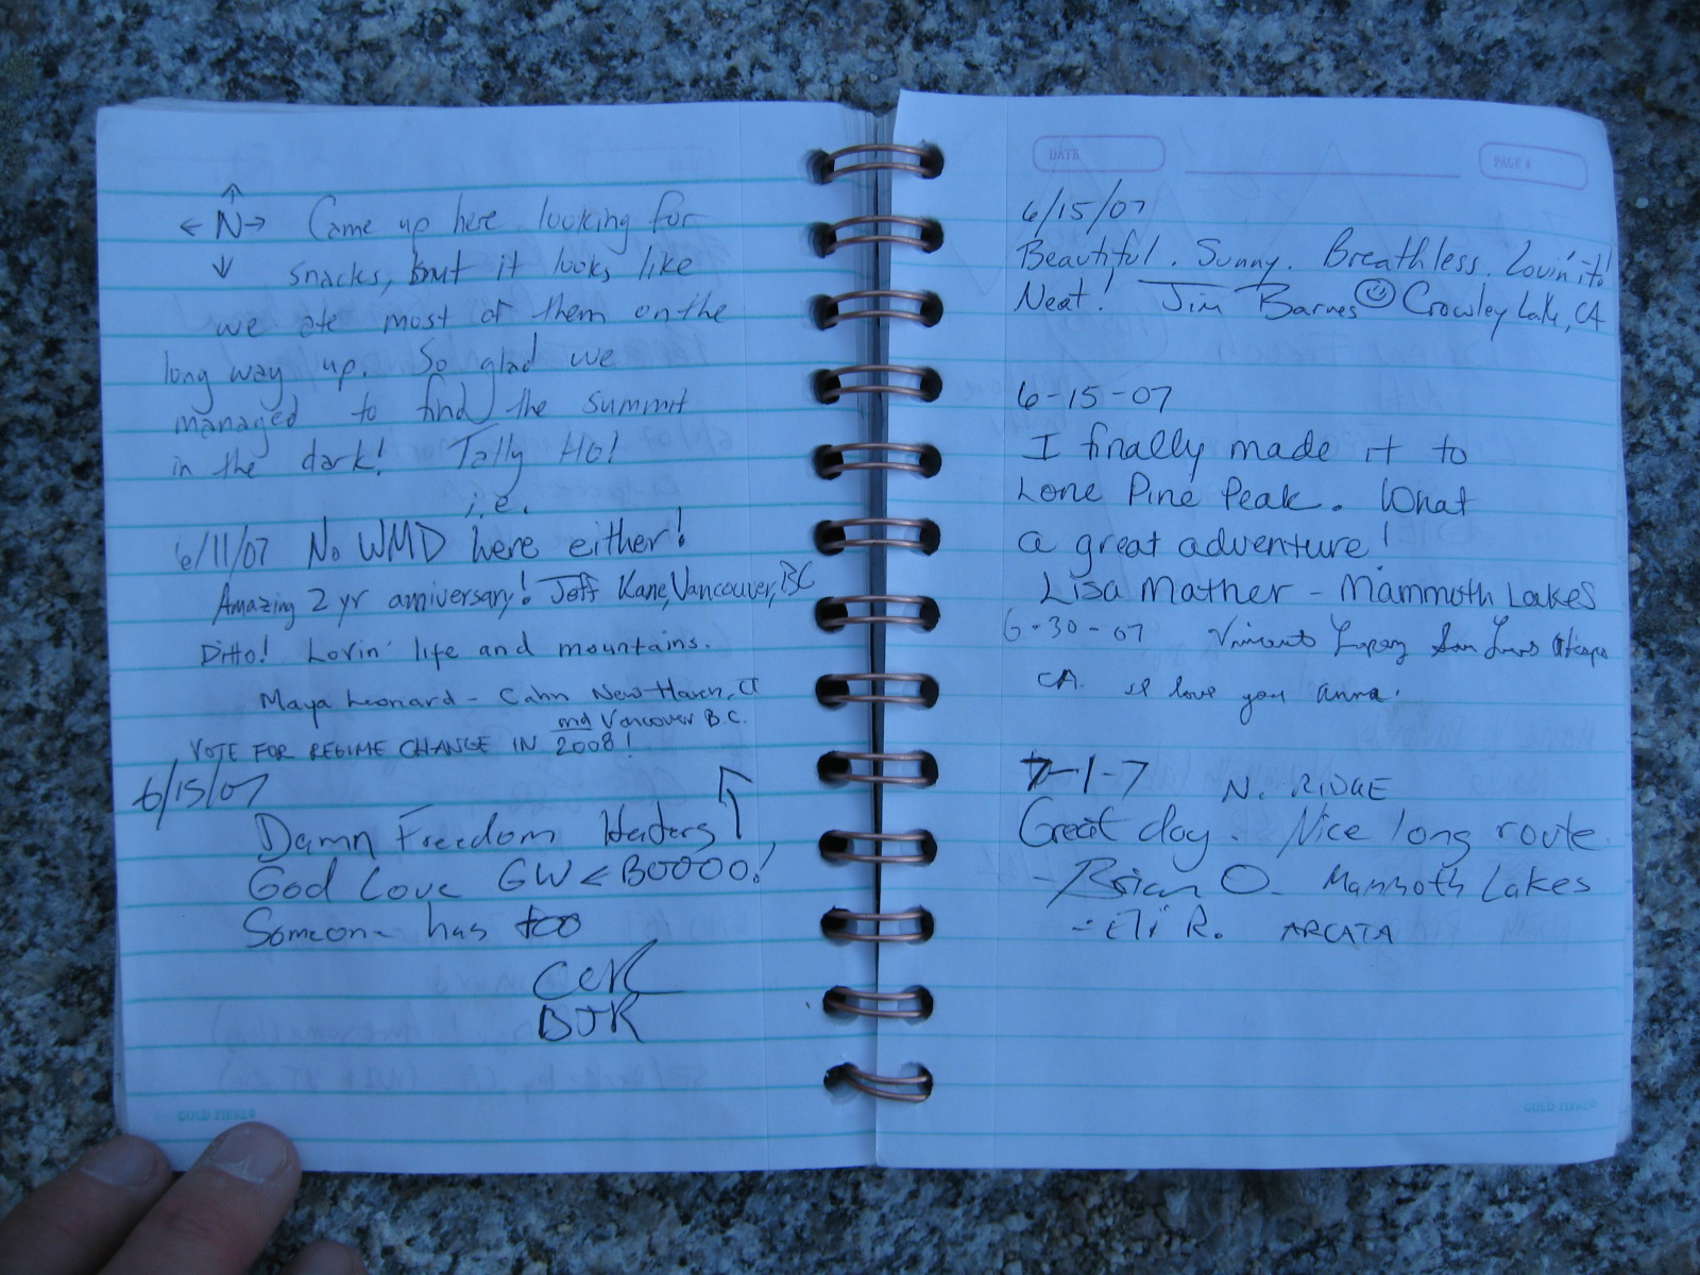 N Came up here looking for
snacks, but it looks like
we ate most of them on the
long way up. So glad we
managed to find the summit
in the dark! Tally Ho!
i.e.
6/11/07 No WMD here either!
Amazing 2 yr anniversary! Jeff Kane, Vancouver, BC
Ditto! Lovin' life and mountains.
Maya Leonard-Cahn New Haven, CT
and Vancouver B.C.
VOTE FOR REGIME CHANGE IN 2008!
6/15/07
Damn Freedom Haters
God Love GW < BOOOO!
Someone has too
CCK
BJR
GOLD FIBRE
DATE
PAGE #
6/15/07
Beautiful. Sunny. Breathless. Lovin' it!
Neat! Jim Barnes Crowley Lake, CA
6-15-07
I finally made it to
Lone Pine Peak. What
a great adventure!
Lisa Mather - Mammoth Lakes
6-30-07 Vincent Lopez San Luis Obispo
CA. I love you anna.
7-1-7 N. RIDGE
Great day. Nice long route.
- Brian O. Mammoth Lakes
- Eli R. ARCATA
GOLD FIBRE